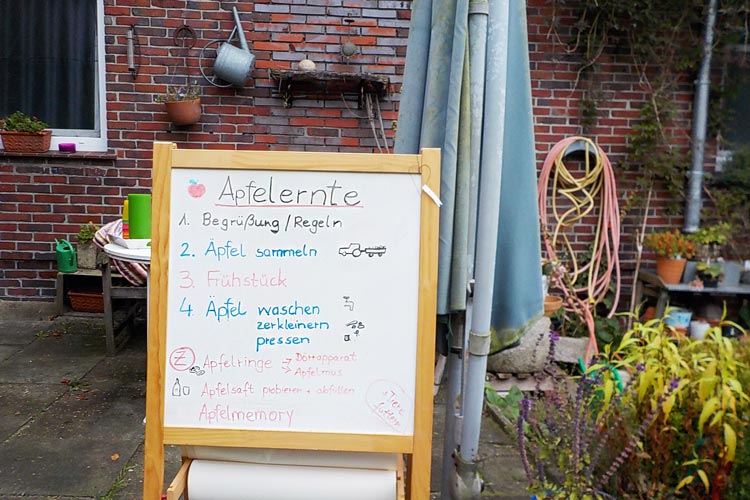 Apfelernte
1. Begrüßung / Regeln
2. Äpfel sammeln
3. Frühstück
4. Äpfel waschen
zerkleinern
pressen
Z Apfelringe → Dörrapparat
→ Apfelmus
Apfelsaft probieren + abfüllen
Apfelmemory
Tiere
füttern